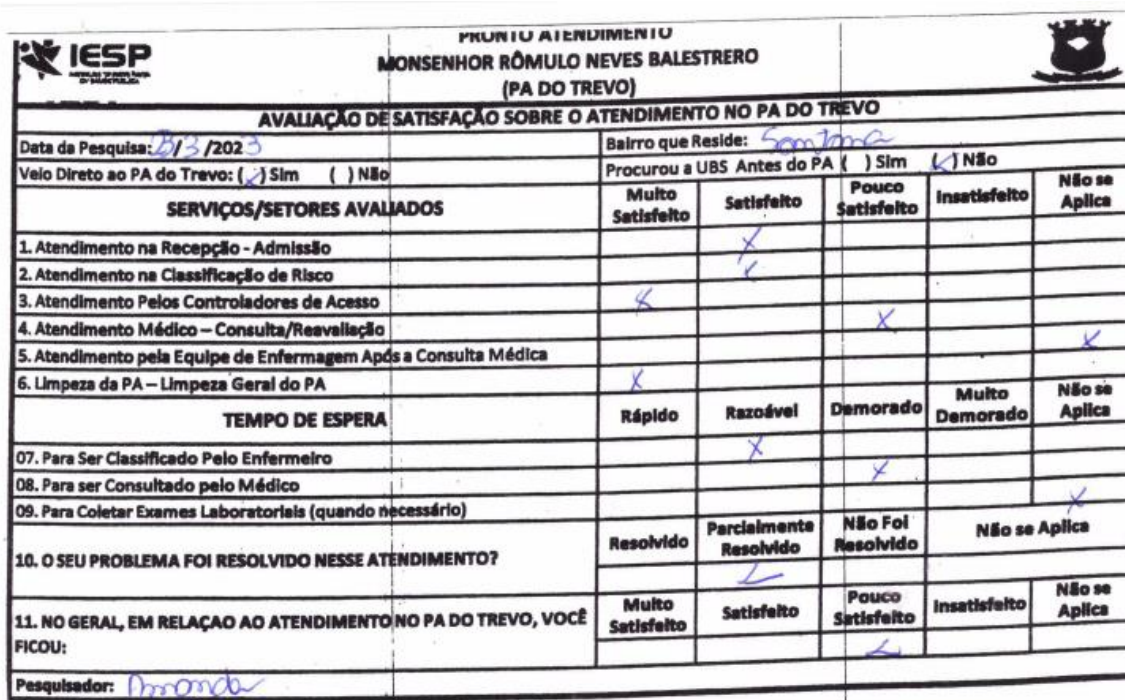 IESP
PRONTO ATENDIMENTO
MONSENHOR RÔMULO NEVES BALESTRERO
(PA DO TREVO)
AVALIAÇÃO DE SATISFAÇÃO SOBRE O ATENDIMENTO NO PA DO TREVO
Data da Pesquisa: /3/2023 Bairro que Reside: Santana
Veio Direto ao PA do Trevo: (✓) Sim ( ) Não Procurou a UBS Antes do PA ( ) Sim (✓) Não
SERVIÇOS/SETORES AVALIADOS Muito Satisfeito Satisfeito Pouco Satisfeito Insatisfeito Não se Aplica
1. Atendimento na Recepção - Admissão X
2. Atendimento na Classificação de Risco X
3. Atendimento Pelos Controladores de Acesso X
4. Atendimento Médico – Consulta/Reavaliação X
5. Atendimento pela Equipe de Enfermagem Após a Consulta Médica X
6. Limpeza da PA – Limpeza Geral do PA X
TEMPO DE ESPERA Rápido Razoável Demorado Muito Demorado Não se Aplica
07. Para Ser Classificado Pelo Enfermeiro X
08. Para ser Consultado pelo Médico X
09. Para Coletar Exames Laboratoriais (quando necessário) X
10. O SEU PROBLEMA FOI RESOLVIDO NESSE ATENDIMENTO? Resolvido Parcialmente Resolvido Não Foi Resolvido Não se Aplica
✓
11. NO GERAL, EM RELAÇAO AO ATENDIMENTO NO PA DO TREVO, VOCÊ FICOU: Muito Satisfeito Satisfeito Pouco Satisfeito Insatisfeito Não se Aplica
✓
Pesquisador: Amanda